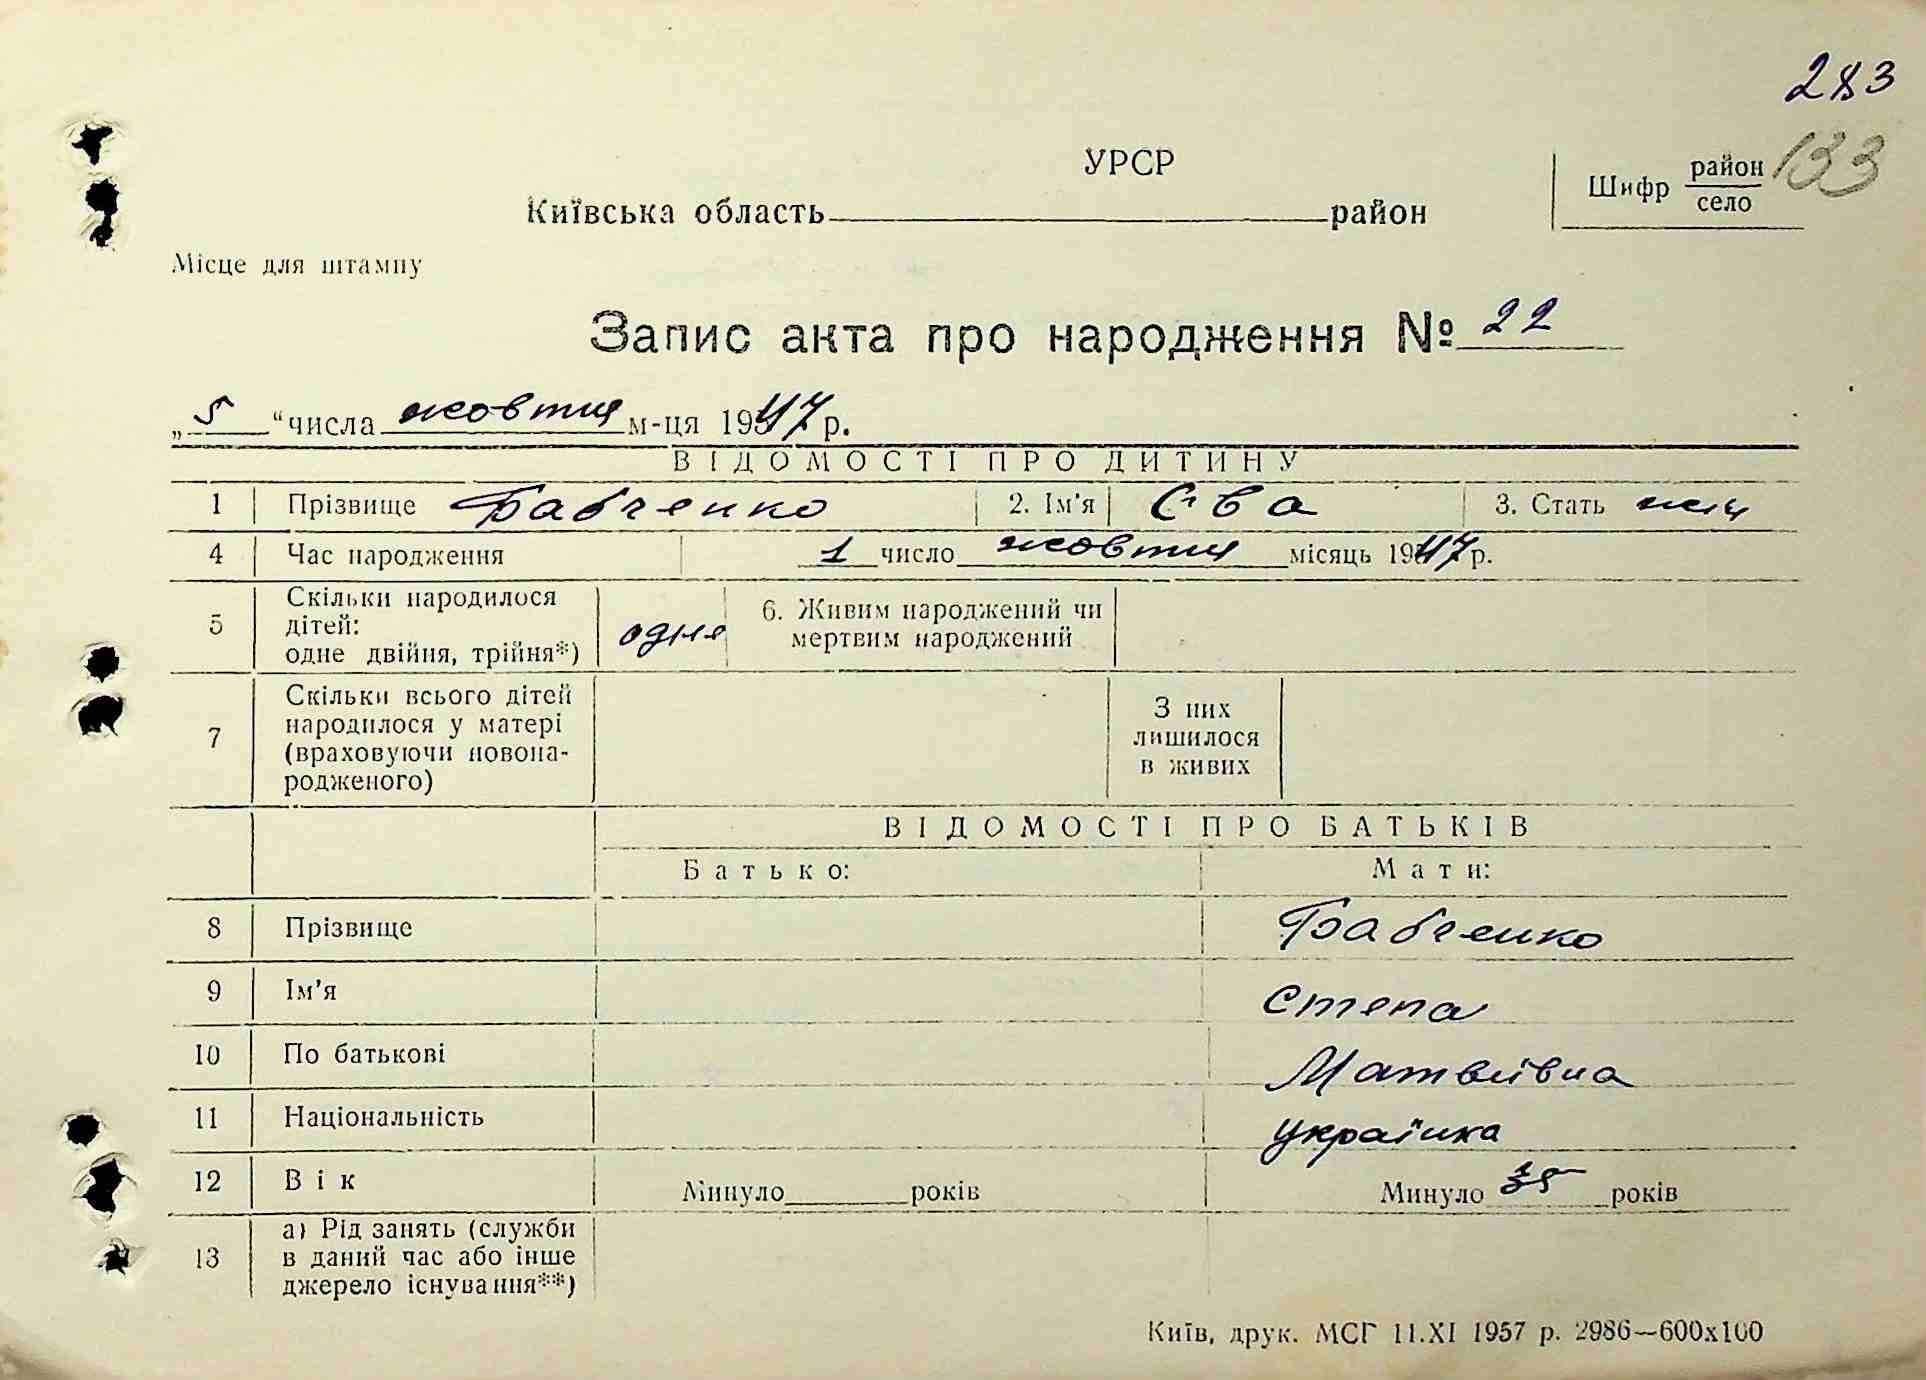 283
УРСР
Шифр район 133
село
Київська область район
Місце для штампу
Запис акта про народження № 22
„5“ числа жовтня м-ця 1947 р.
ВІДОМОСТІ ПРО ДИТИНУ
1 Прізвище Бабченко 2. Ім'я Єва 3. Стать жін
4 Час народження 1 число жовтня місяць 1947 р.
5 Скільки народилося дітей: одне двійня, трійня*) одне 6. Живим народжений чи мертвим народжений
7 Скільки всього дітей народилося у матері (враховуючи новона-родженого) З них лишилося в живих
ВІДОМОСТІ ПРО БАТЬКІВ
Батько: Мати:
8 Прізвище Бабченко
9 Ім'я Степа
10 По батькові Матвіївна
11 Національність українка
12 Вік Минуло років Минуло 35 років
13 а) Рід занять (служби в даний час або інше джерело існування**)
Київ, друк. МСГ 11.XI 1957 р. 2986—600х100